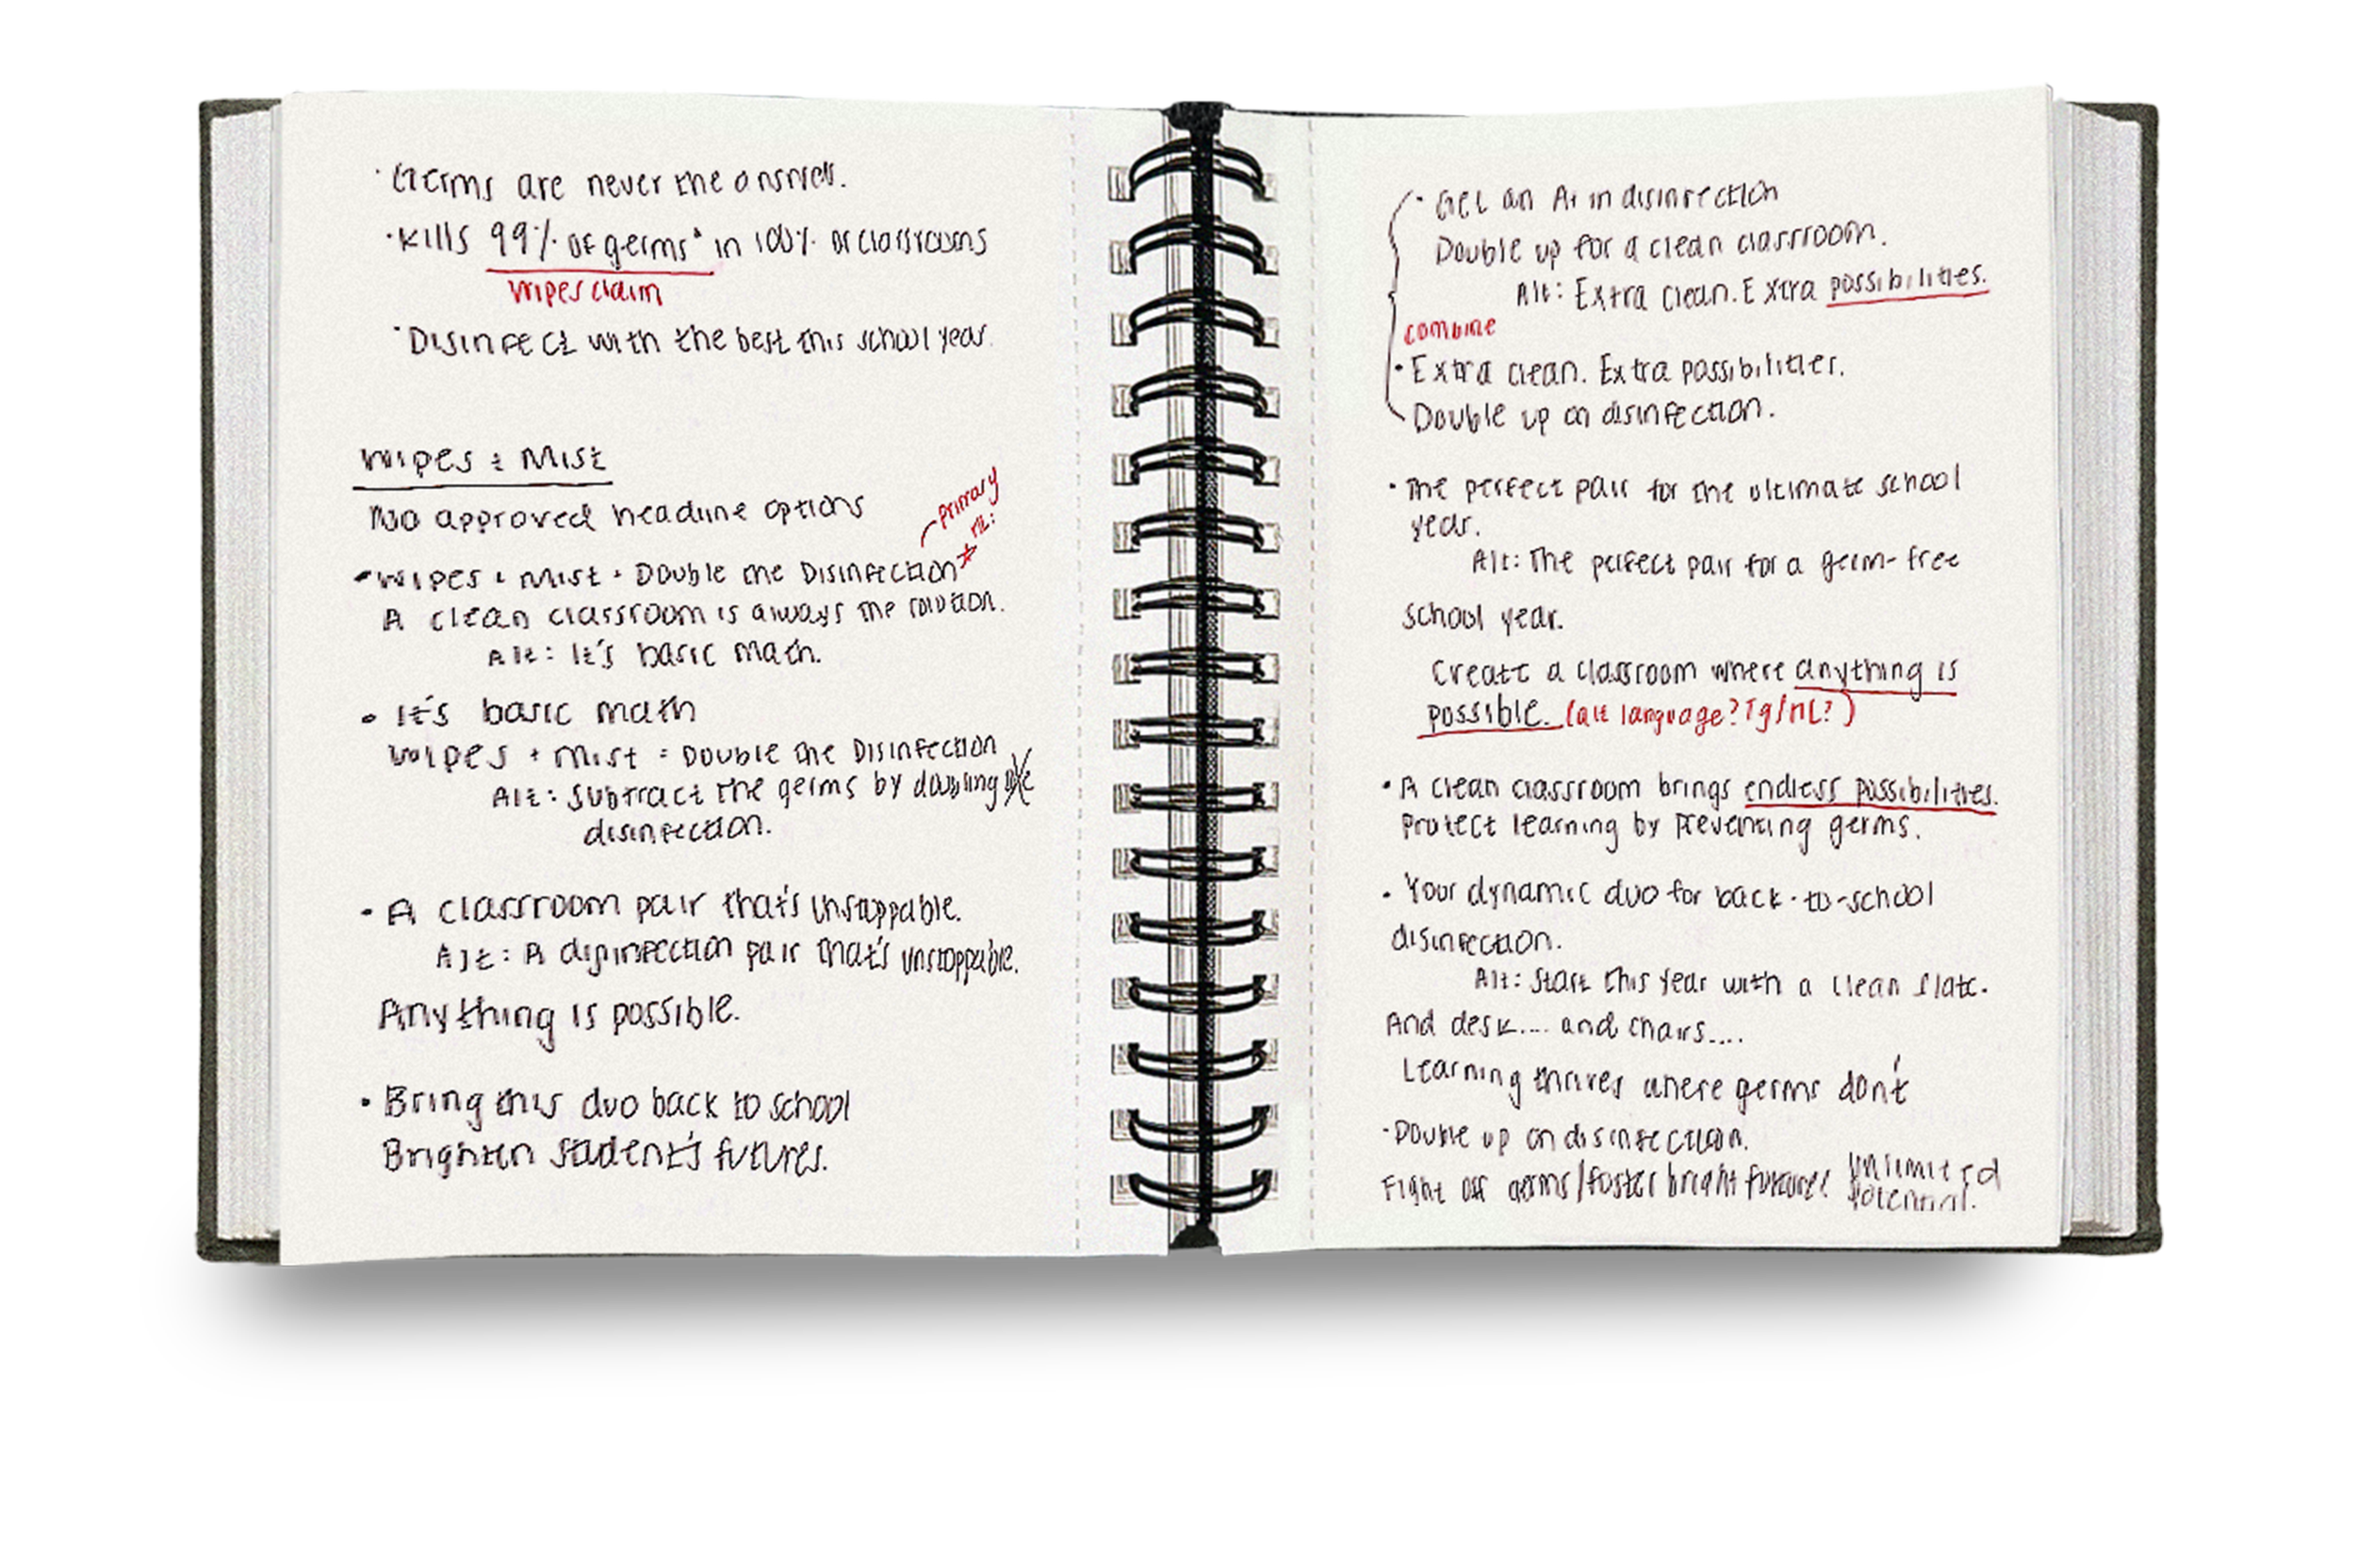 · Germs are never the answer.
· Kills 99% of germs* in 100% of classrooms
wipes claim
· Disinfect with the best this school year.
Wipes + Mist
No approved headline options
primary
HL:
· Wipes + Mist = Double the Disinfection *
A clean classroom is always the solution.
Alt: It's basic math.
· It's basic math
Wipes + Mist = Double the Disinfection
Alt: Subtract the germs by doubling
disinfection.
· A classroom pair that's unstoppable.
Alt: A disinfection pair that's unstoppable.
Anything is possible.
· Bring this duo back to school
Brighten student's futures.
· Get an A+ in disinfection
Double up for a clean classroom.
Alt: Extra clean. Extra possibilities.
combine
· Extra clean. Extra possibilities.
Double up on disinfection.
· The perfect pair for the ultimate school
year.
Alt: The perfect pair for a germ-free
school year.
Create a classroom where anything is
possible. (alt language? Tg/HL?)
· A clean classroom brings endless possibilities.
Protect learning by preventing germs.
· Your dynamic duo for back-to-school
disinfection.
Alt: Start this year with a clean slate.
And desk.... and chairs....
Learning thrives where germs don't
· Double up on disinfection.
Fight off germs/foster bright futures unlimited
potential.